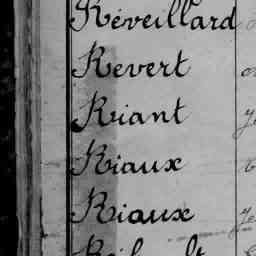 Réveillard
Revert
Riant
Riaux
Riaux